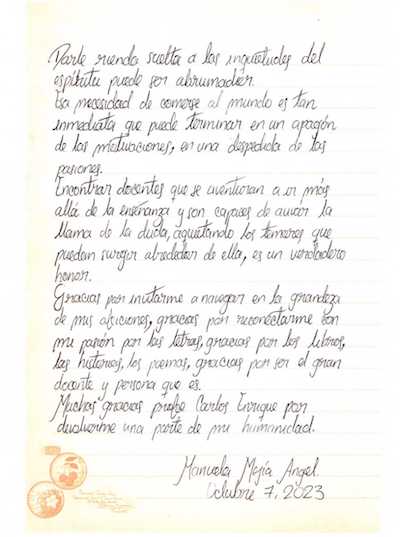 Darle rienda suelta a las inquietudes del
espíritu puede ser abrumador.
Esa necesidad de comerse al mundo es tan
inmediata que puede terminar en un apagón
de las motivaciones, en una despedida de las
pasiones.
Encontrar docentes que se aventuran a ir más
allá de la enseñanza y son capaces de avivar la
llama de la duda, aquietando los temores que
puedan surgir alrededor de ella, es un verdadero
honor.
Gracias por invitarme a navegar en la grandeza
de mis aficiones, gracias por reconectarme con
mi pasión por las letras, gracias por los libros,
las historias, los poemas, gracias por ser el gran
docente y persona que es.
Muchas gracias profe Carlos Enrique por
devolverme una parte de mi humanidad.
Manuela Mejía Ángel.
Octubre 7, 2023